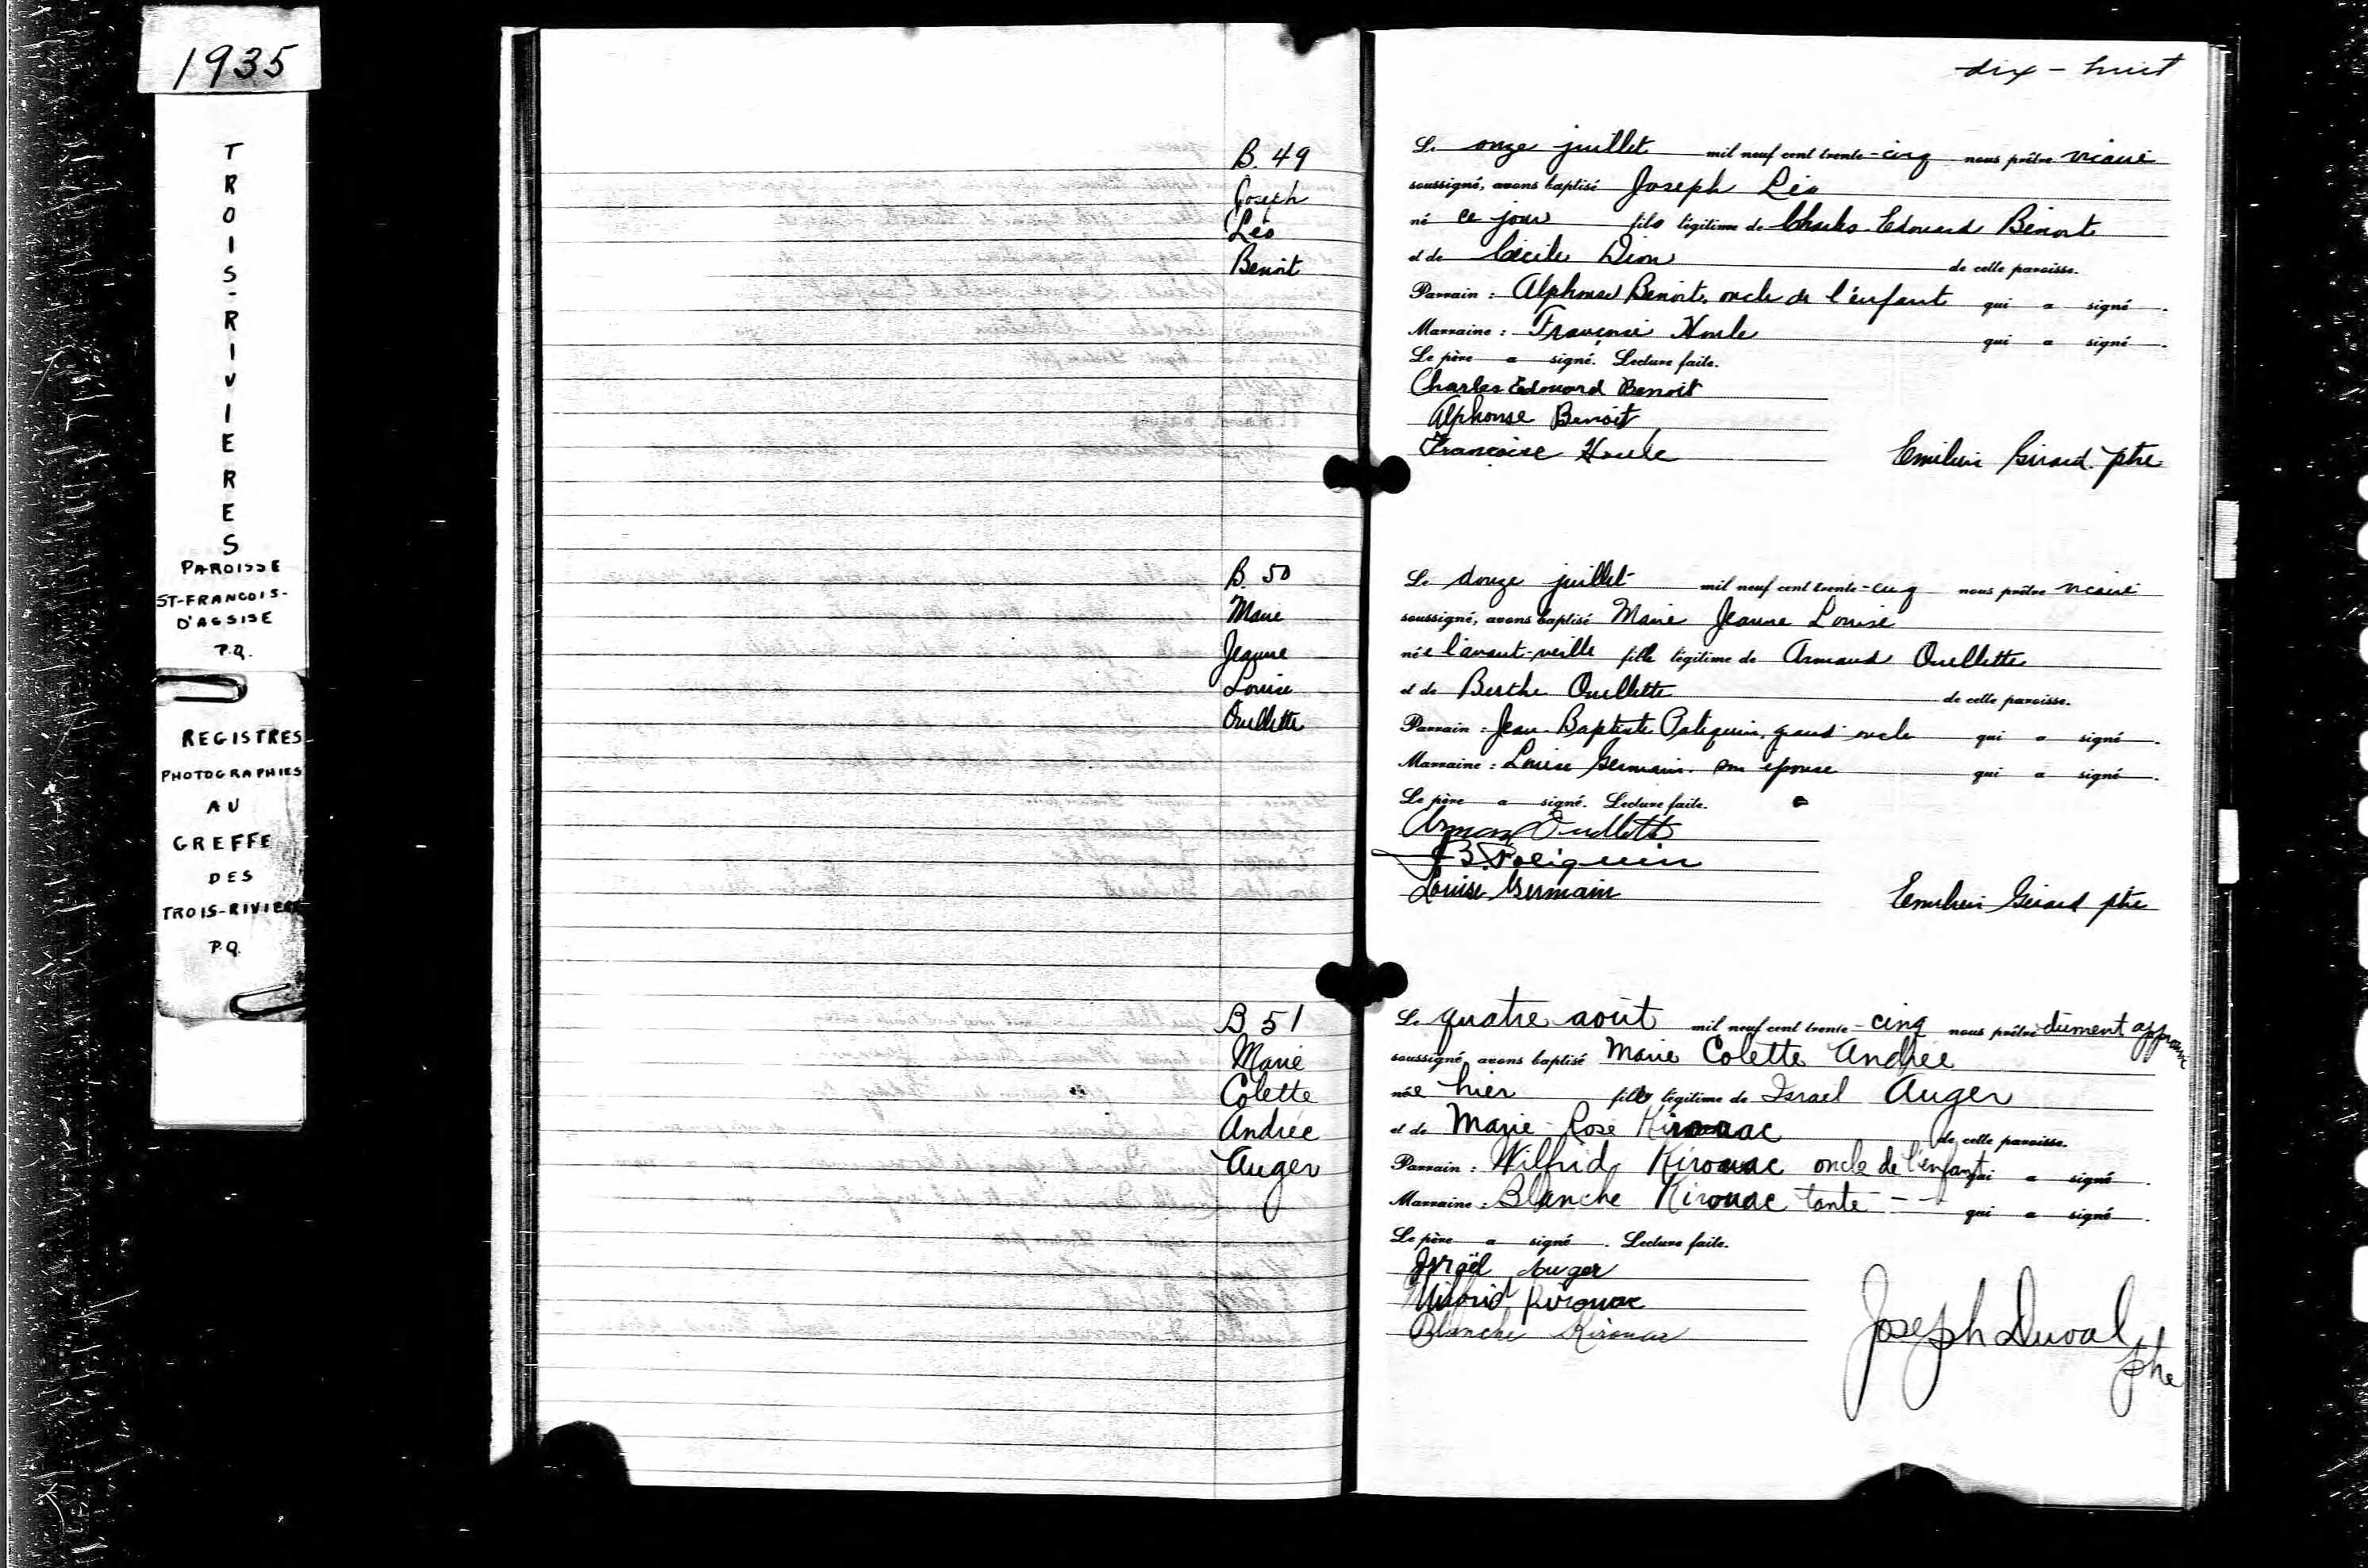 1935
TROIS-RIVIERES
PAROISSE
ST-FRANCOIS-
D'ASSISE
P.Q.
REGISTRES
PHOTOGRAPHIES
AU
GREFFE
DES
TROIS-RIVIERES
P.Q.
dix-huit
B. 49
Joseph
Léo
Benoit
Le onze juillet mil neuf cent trente-cinq nous prêtre vicaire
soussigné, avons baptisé Joseph Léo
né ce jour fils légitime de Charles-Edouard Benoit
et de Cécile Dion de cette paroisse.
Parrain : Alphonse Benoit, oncle de l'enfant qui a signé.
Marraine : Françoise Houle qui a signé.
Le père a signé. Lecture faite.
Charles Edouard Benoit
Alphonse Benoit
Françoise Houle Emilien Girard ptre
B. 50
Marie
Jeanne
Louise
Ouellette
Le douze juillet mil neuf cent trente-cinq nous prêtre vicaire
soussigné, avons baptisé Marie Jeanne Louise
née l'avant-veille fille légitime de Armand Ouellette
et de Berthe Ouellette de cette paroisse.
Parrain : Jean-Baptiste Poliquin, grand-oncle qui a signé.
Marraine : Louise Germain son épouse qui a signé.
Le père a signé. Lecture faite.
Armand Ouellette
J B Poliquin
Louise Germain Emilien Girard ptre
B 51
Marie
Colette
Andrée
Auger
Le quatre août mil neuf cent trente-cinq nous prêtre dûment approuvé
soussigné, avons baptisé Marie Colette Andrée
née hier fille légitime de Israel Auger
et de Marie-Rose Kirouac de cette paroisse.
Parrain : Wilfrid Kirouac oncle de l'enfant qui a signé.
Marraine : Blanche Kirouac tante - - qui a signé.
Le père a signé. Lecture faite.
Israël Auger
Wilfrid Kirouac
Blanche Kirouac
Joseph Duval
ptre